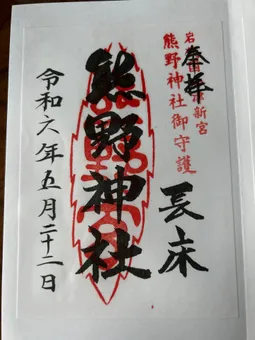 新宮
奉拝
熊野神社御守護
長床
熊野神社
令和六年五月二十二日